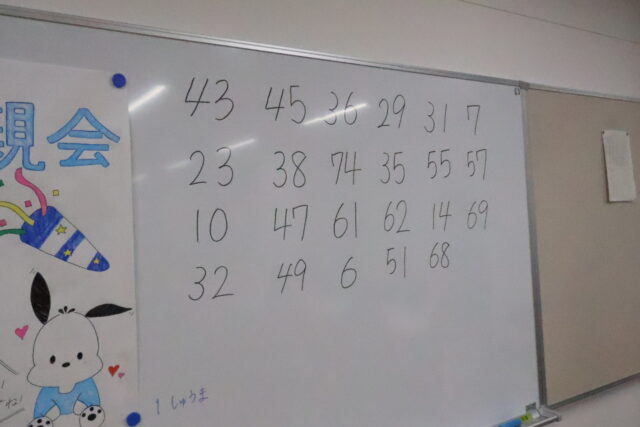 親会
43 45 36 29 31 7
23 38 74 35 55 57
10 47 61 62 14 69
32 49 6 51 68
1 しゅうま